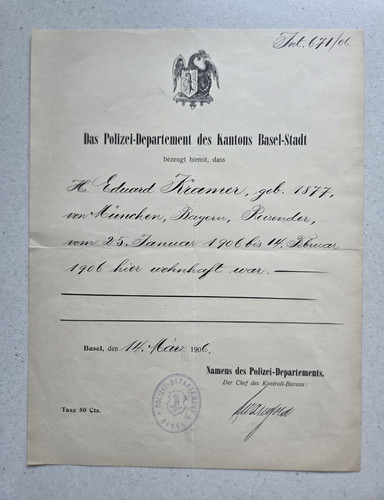 Int. 671/06.
Das Polizei-Departement des Kantons Basel-Stadt
bezeugt hiemit, dass
H. Eduard Kramer, geb. 1877,
von München, Bayern, Reisender,
vom 25. Januar 1906 bis 14. Februar
1906 hier wohnhaft war.
Basel, den 14. März 1906.
Namens des Polizei-Departements,
Der Chef des Kontroll-Bureau:
POLIZEI-DEPARTEMENT
BASEL
Taxe 50 Cts.